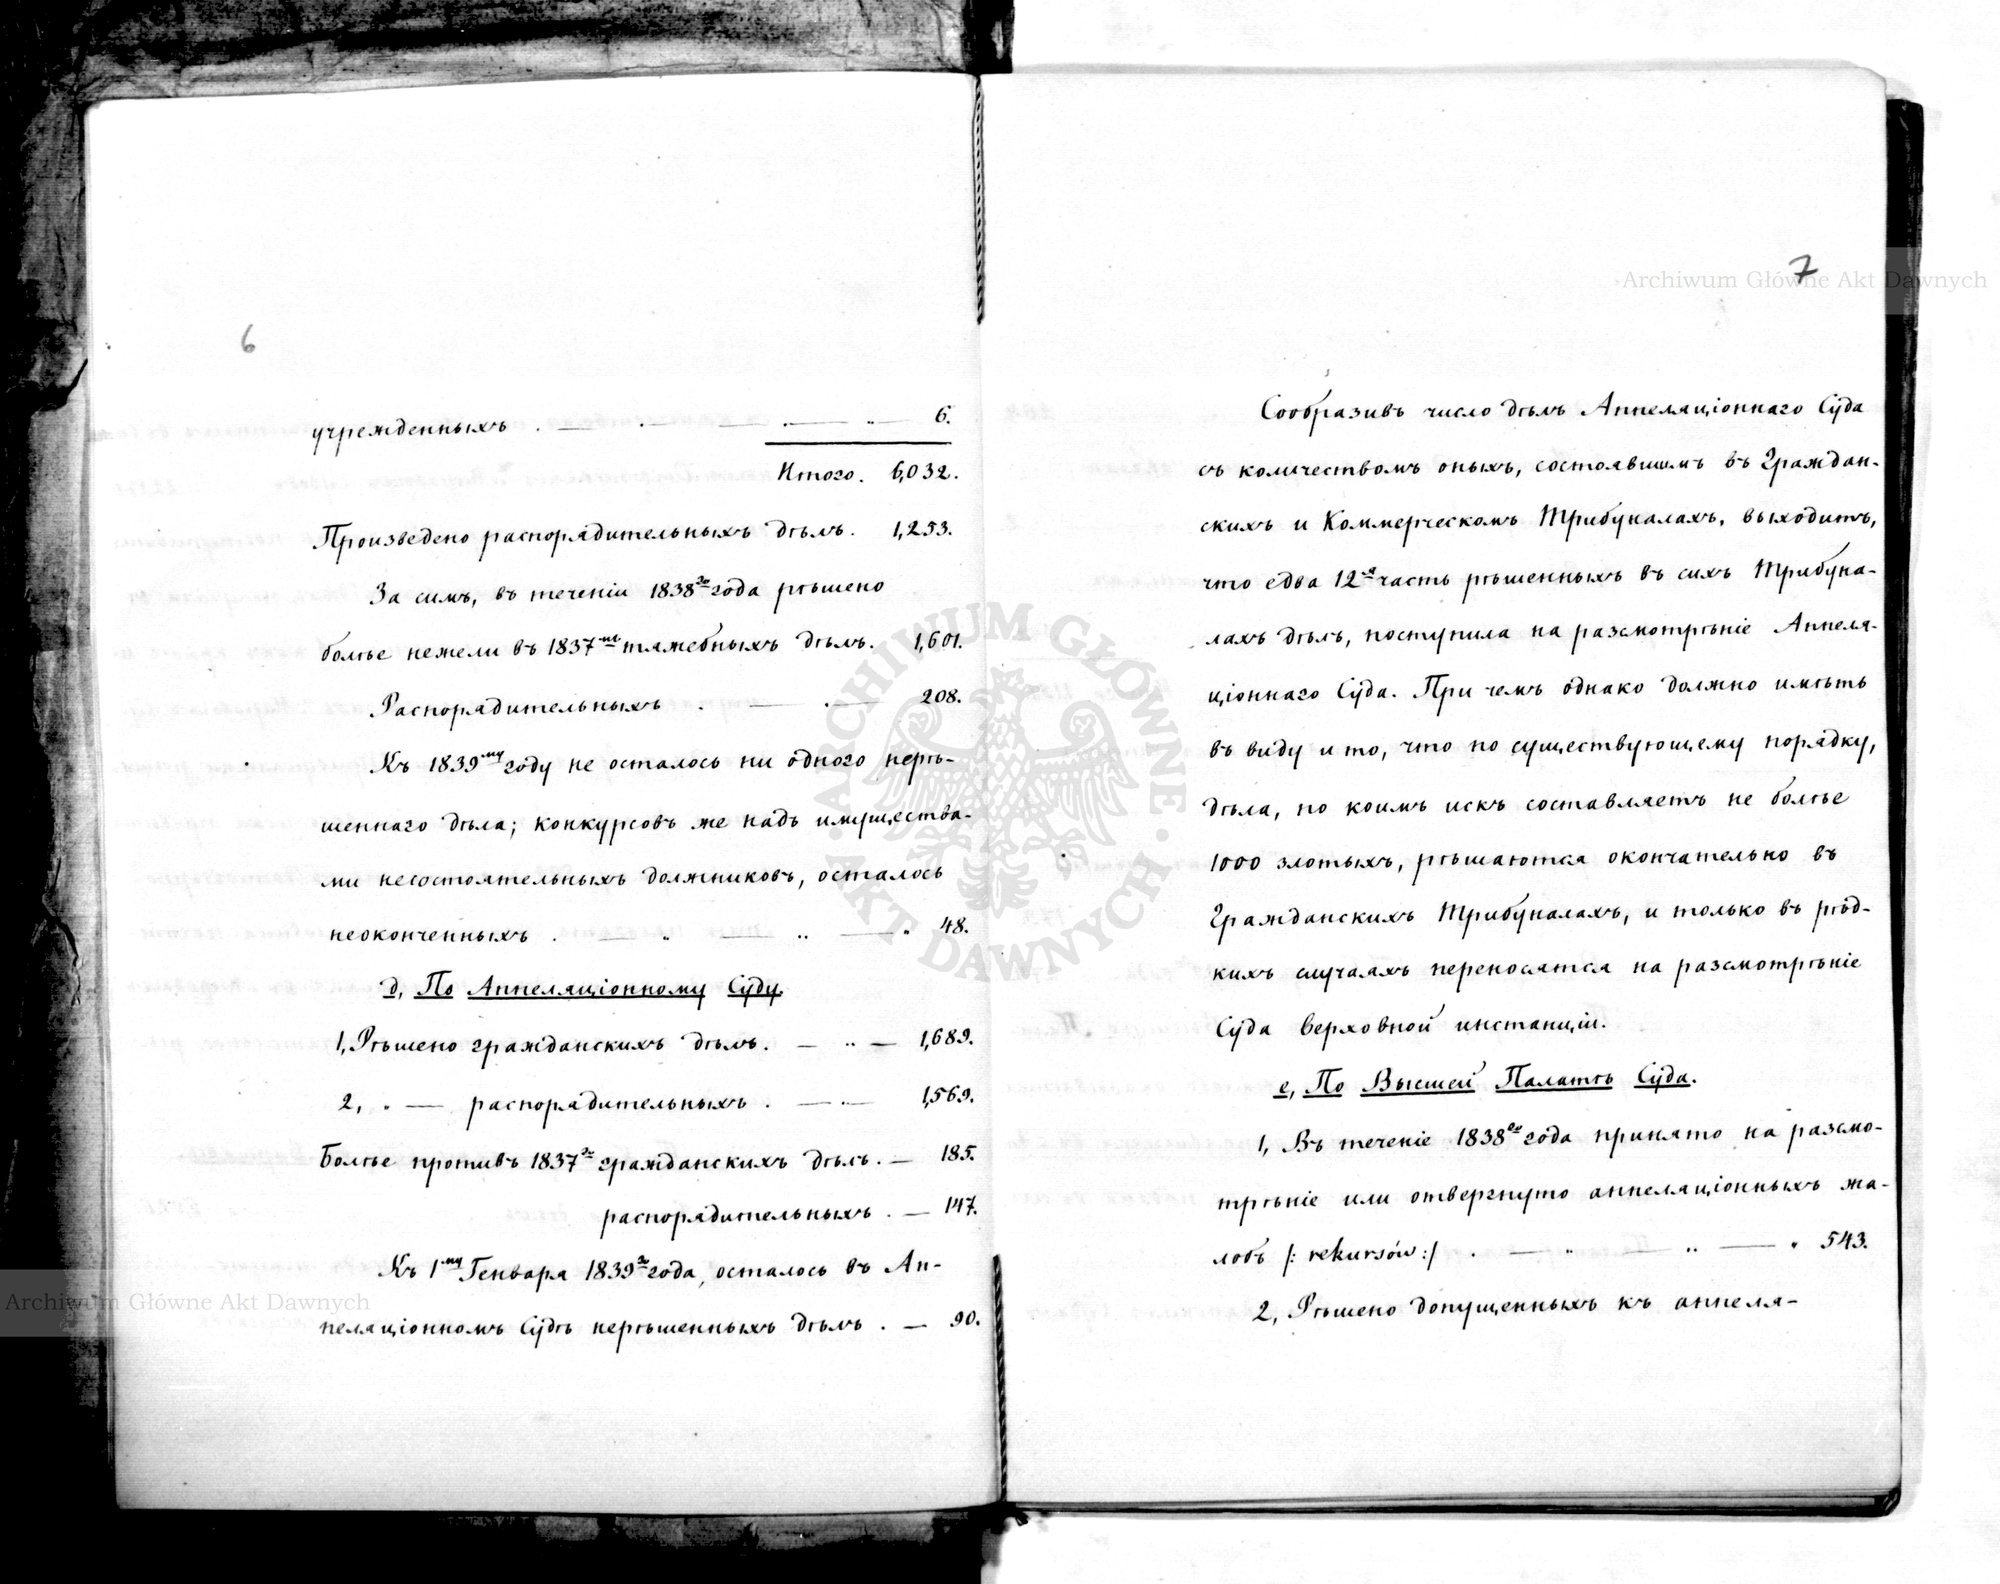 6
учрежденныхъ . — . — — . — .. — 6.
Итого. 6,032.
Произведено распорядительныхъ дѣлъ. 1,253.
За симъ, въ теченіи 1838го года рѣшено
болѣе нежели въ 1837мъ тяжебныхъ дѣлъ. 1,601.
Распорядительныхъ . — . — 208.
Къ 1839му году не осталось ни одного нерѣ-
шеннаго дѣла; конкурсовъ же надъ имущества-
ми несостоятельныхъ должниковъ, осталось
неоконченныхъ . — „ — .. — „ 48.
д, По Аппеляціонному Суду
1, Рѣшено гражданскихъ дѣлъ. — .. — 1,689.
2, „ — распорядительныхъ . — .. — 1,569.
Болѣе противъ 1837го гражданскихъ дѣлъ. — 185.
распорядительныхъ . — 147.
Къ 1му Генваря 1839го года, осталось въ Ап-
пеляціонномъ Судѣ нерѣшенныхъ дѣлъ . — 90.
7
Сообразивъ число дѣлъ Аппеляціоннаго Суда
съ количествомъ оныхъ, состоявшимъ въ Граждан-
скихъ и Коммерческомъ Трибуналахъ, выходитъ,
что едва 12я часть рѣшенныхъ въ сихъ Трибуна-
лахъ дѣлъ, поступила на разсмотрѣніе Аппеля-
ціоннаго Суда. При чемъ однако должно имѣть
въ виду и то, что по существующему порядку,
дѣла, по коимъ искъ составляетъ не болѣе
1000 злотыхъ, рѣшаются окончательно въ
Гражданскихъ Трибуналахъ, и только въ рѣд-
кихъ случаяхъ переносятся на разсмотрѣніе
Суда верховной инстанціи.
е, По Высшей Палатѣ Суда.
1, Въ теченіе 1838го года принято на разсмо-
трѣніе или отвергнуто аппеляціонныхъ жа-
лобъ /: rekursów :/ . — „ — .. — „ 543.
2, Рѣшено допущенныхъ къ аппеля-
Archiwum Główne Akt Dawnych
Archiwum Główne Akt Dawnych
ARCHIWUM GŁÓWNE · AKT DAWNYCH ·